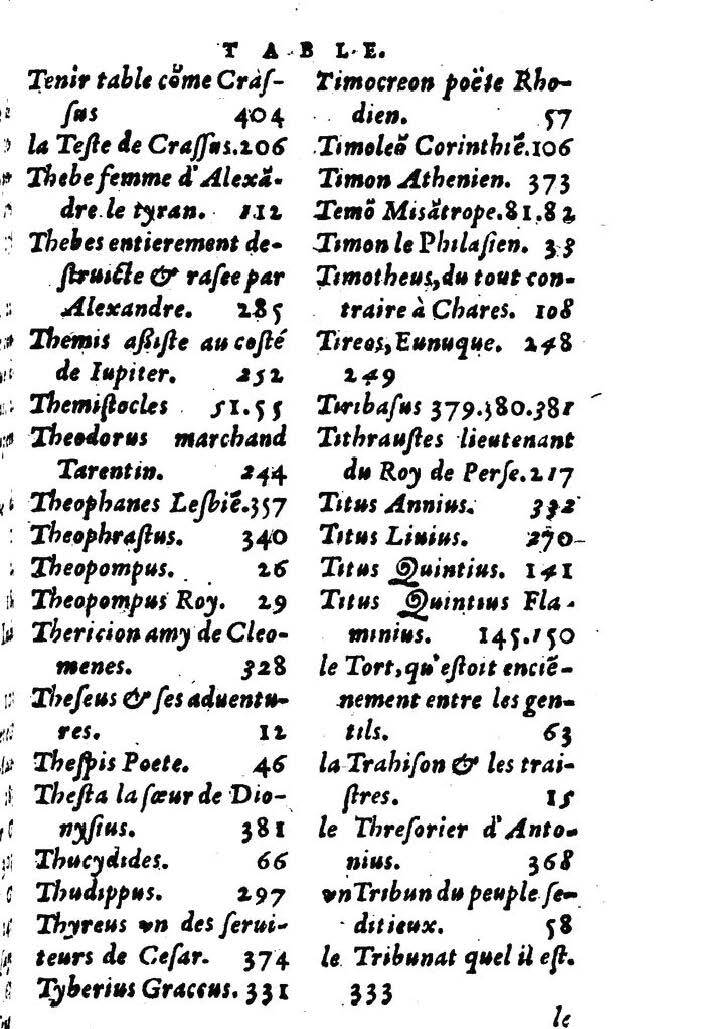 TABLE.
Tenir table cõme Craſ-
ſus 404
la Teſte de Craſſus.206
Thebe femme d'Alexã-
dre le tyran. 112
Thebes entierement de-
ſtruicte & raſee par
Alexandre. 285
Themis aßiſte au coſté
de Iupiter. 252
Themiſtocles 51.55
Theodorus marchand
Tarentin. 244
Theophanes Leſbiẽ.357
Theophraſtus. 340
Theopompus. 26
Theopompus Roy. 29
Thericion amy de Cleo-
menes. 328
Theſeus & ſes aduentu-
res. 12
Theſpis Poete. 46
Theſta la ſœur de Dio-
nyſius. 381
Thucydides. 66
Thudippus. 297
Thyreus vn des ſerui-
teurs de Ceſar. 374
Tyberius Graccus. 331
Timocreon poëte Rho-
dien. 57
Timoleõ Corinthiẽ.106
Timon Athenien. 373
Temõ Misãtrope.81.82
Timon le Philaſien. 33
Timotheus, du tout con-
traire à Chares. 108
Tireos, Eunuque. 248
249
Tiribaſus 379.380.381
Tithrauſtes lieutenant
du Roy de Perſe.217
Titus Annius. 332
Titus Liuius. 270
Titus Quintius. 141
Titus Quintius Fla-
minius. 145.150
le Tort, qu'eſtoit enciẽ-
nement entre les gen-
tils. 63
la Trahiſon & les trai-
ſtres. 15
le Threſorier d'Anto-
nius. 368
vn Tribun du peuple ſe-
ditieux. 58
le Tribunat quel il eſt.
333
le